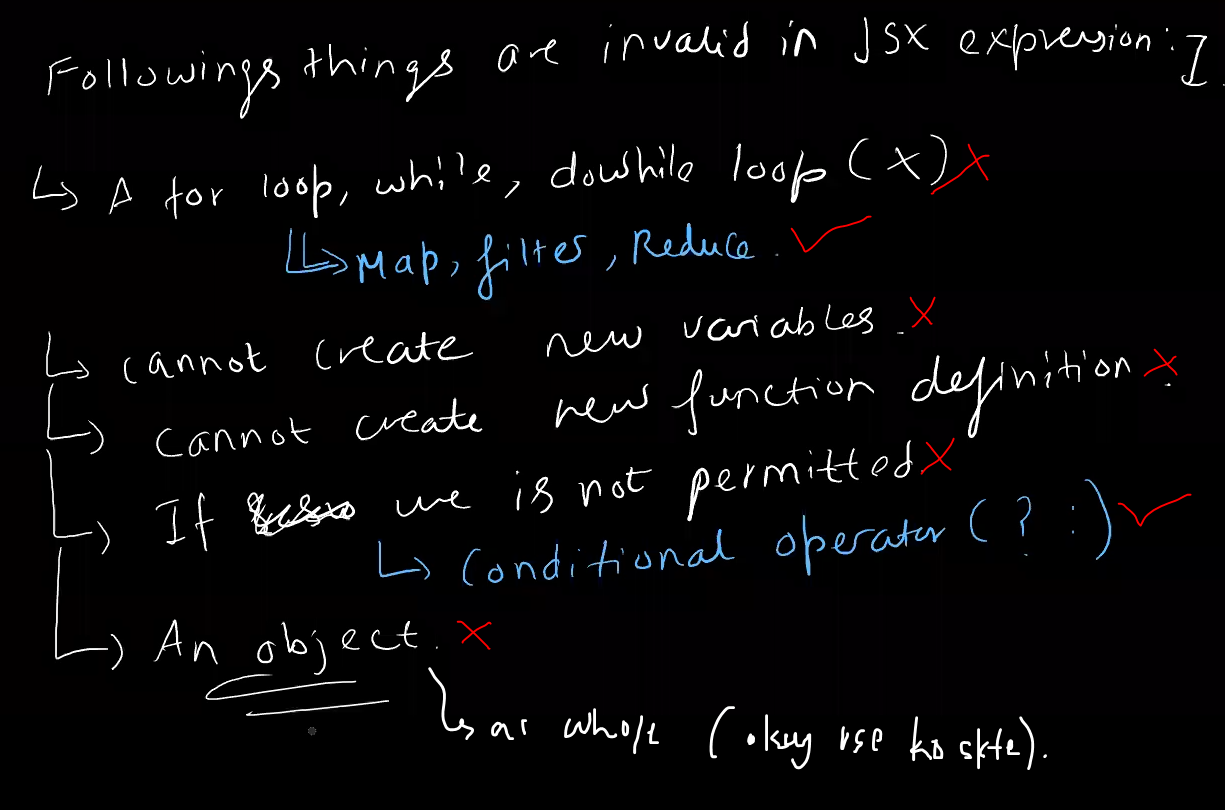 Followings things are invalid in JSX expression:
↳ A for loop, while, dowhile loop (X) X
↳ Map, filter, Reduce. ✓
↳ cannot create new variables. X
↳ cannot create new function definition X.
↳ If use is not permitted X
↳ Conditional operator (? :) ✓
↳ An object. X
↳ as whole (.key use ko skte).